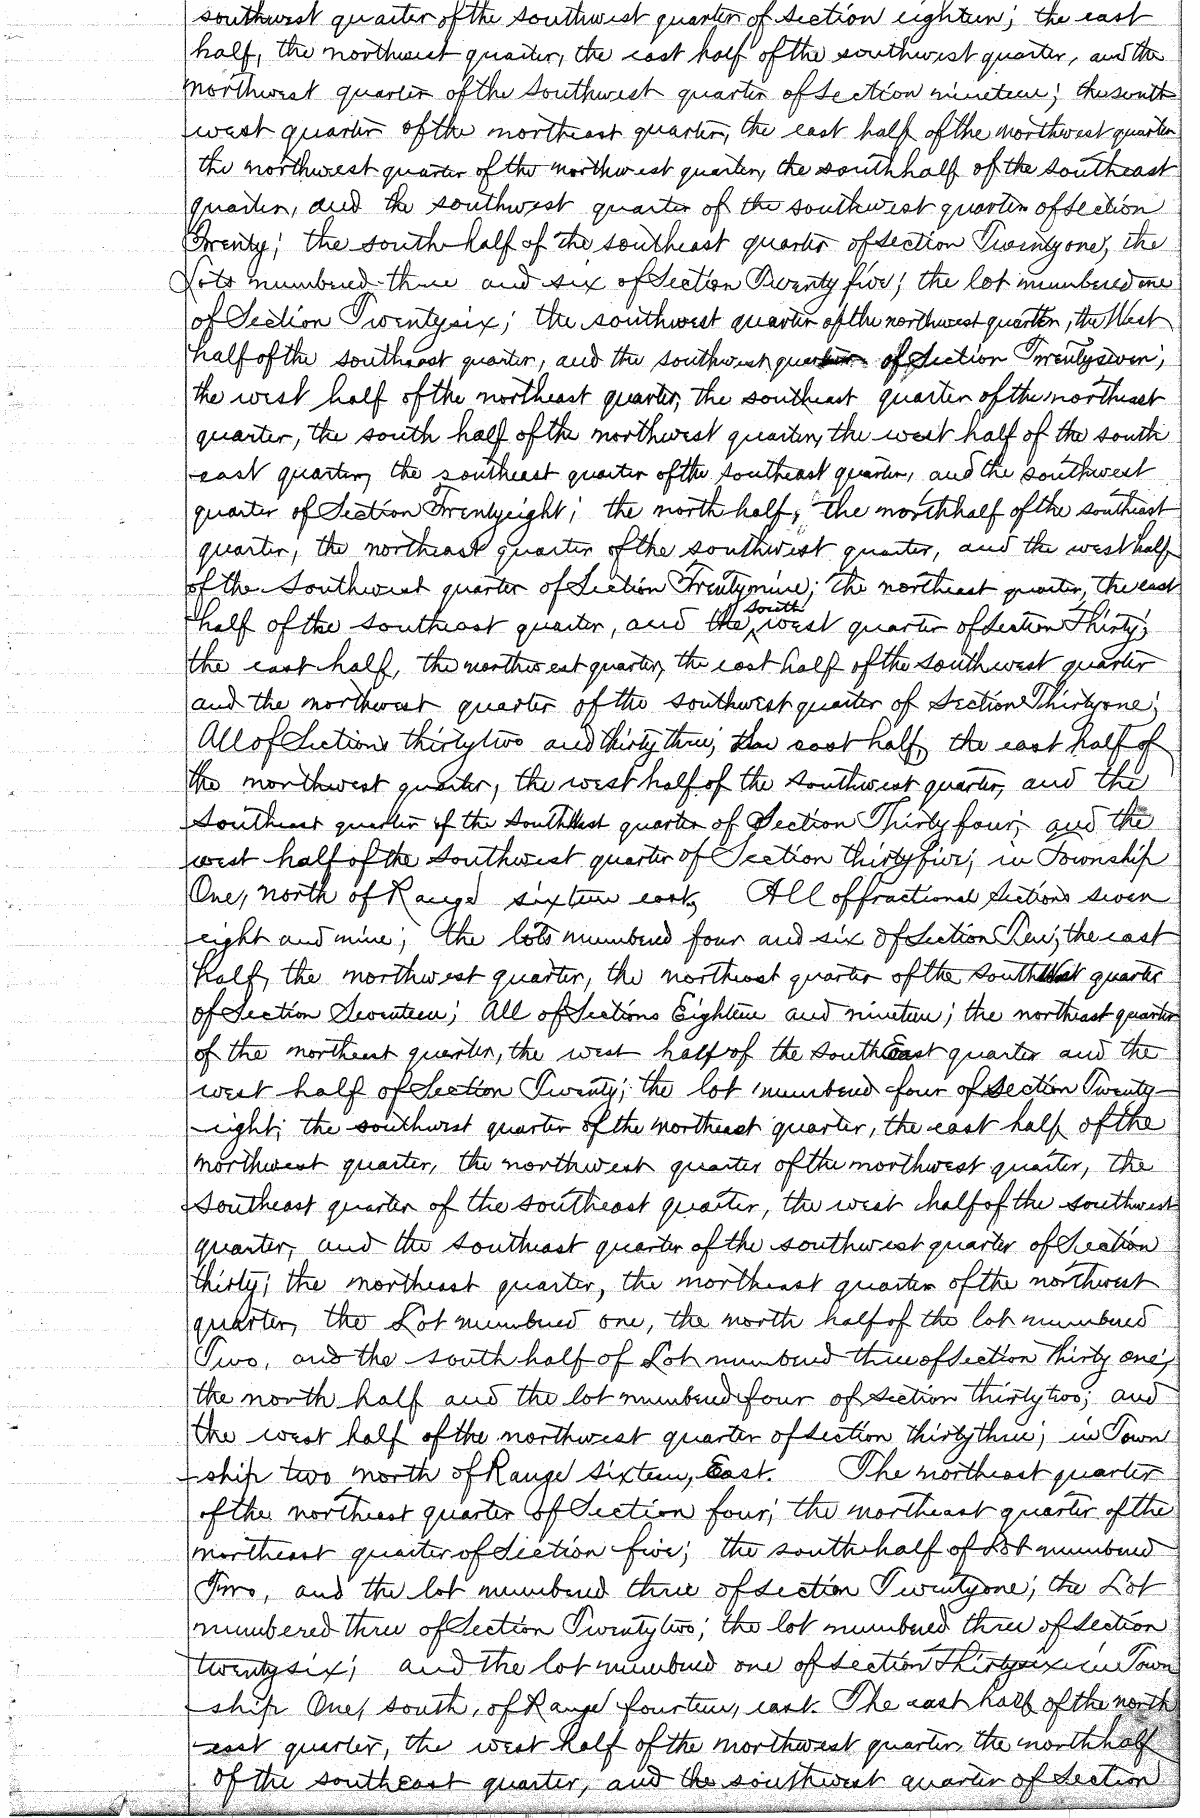 southwest quarter of the southwest quarter of section eighteen; the east
half, the northwest quarter, the east half of the southwest quarter, and the
northwest quarter of the southwest quarter of section nineteen; the south
west quarter of the northeast quarter, the east half of the northwest quarter
the northwest quarter of the northwest quarter, the south half of the southeast
quarter, and the southwest quarter of the southwest quarter of section
Twenty; the south half of the southeast quarter of section Twenty one; the
Lots numbered three and six of Section Twenty five; the lot numbered one
of Section Twenty six; the southwest quarter of the northwest quarter, the West
half of the southeast quarter, and the southwest quarter of Section Twenty seven;
the west half of the northeast quarter, the southeast quarter of the northeast
quarter, the south half of the northwest quarter, the west half of the south
east quarter, the southeast quarter of the southeast quarter, and the southwest
quarter of Section Twenty eight; the north half, the north half of the southeast
quarter, the northeast quarter of the southwest quarter, and the west half
of the Southwest quarter of Section Twenty nine; the northeast quarter, the east
half of the southeast quarter, and the south west quarter of section Thirty;
the east half, the northwest quarter, the east half of the southwest quarter
and the northwest quarter of the southwest quarter of Section Thirty one;
All of Sections thirty two and thirty three; the east half, the east half of
the northwest quarter, the west half of the southwest quarter, and the
southeast quarter of the southwest quarter of Section Thirty four; and the
west half of the southwest quarter of Section thirty five; in Township
One, north of Range sixteen east, All of fractional sections seven
eight and nine; the lots numbered four and six of Section Ten; the east
half, the northwest quarter, the northeast quarter of the southwest quarter
of Section Seventeen; All of Sections Eighteen and nineteen; the northeast quarter
of the northeast quarter, the west half of the southEast quarter and the
west half of Section Twenty; the lot numbered four of section Twenty
eight; the southwest quarter of the northeast quarter, the east half of the
northwest quarter, the northwest quarter of the northwest quarter, the
southeast quarter of the southeast quarter, the west half of the southwest
quarter, and the southeast quarter of the southwest quarter of Section
thirty; the northeast quarter, the northeast quarter of the northwest
quarter, the Lot numbered one, the north half of the lot numbered
Two, and the south half of Lot numbered three of section Thirty one;
the north half and the lot numbered four of section thirty two; and
the west half of the northwest quarter of section thirty three; in Town
ship two north of Range Sixteen, East. The northeast quarter
of the northeast quarter of Section four; the northeast quarter of the
northeast quarter of Section five; the south half of Lot numbered
Two, and the lot numbered three of section Twenty one; the Lot
numbered three of Section Twenty two; the lot numbered three of section
twenty six; and the lot numbered one of section Thirty six in Town
ship One, south, of Range fourteen, east. The east half of the north
east quarter, the west half of the northwest quarter, the north half
of the southeast quarter, and the southwest quarter of Section